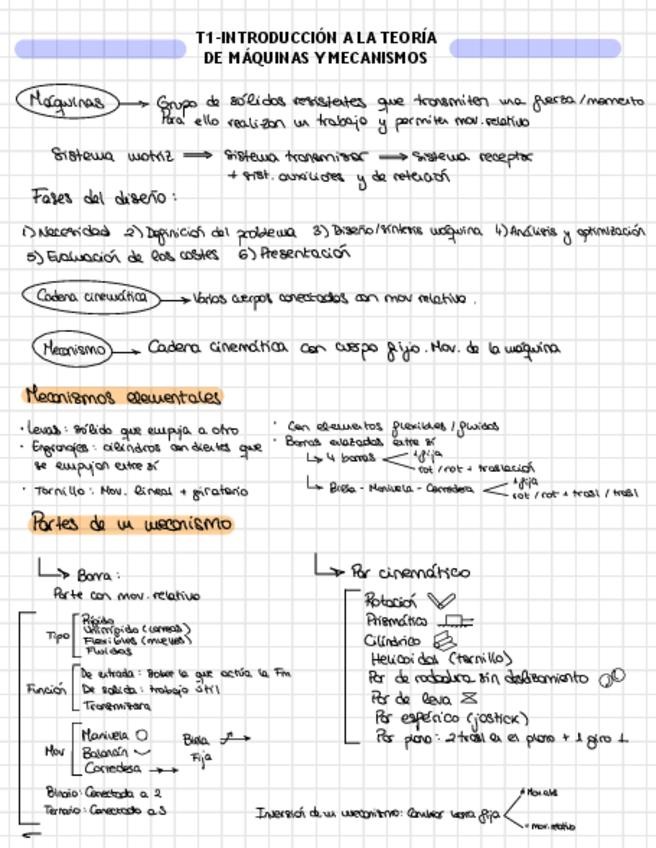 T1-INTRODUCCIÓN A LA TEORÍA
DE MÁQUINAS Y MECANISMOS
Máquinas → Grupo de sólidos resistentes que transmiten una fuerza/momento
Para ello realizan un trabajo y permiten mov. relativo
Sistema motriz ⟹ Sistema transmisor ⟹ Sistema receptor
+ sist. auxiliares y de retención
Fases del diseño:
1) Necesidad 2) Definición del problema 3) Diseño/síntesis máquina 4) Análisis y optimización
5) Evaluación de los costes 6) Presentación
Cadena cinemática → Varios cuerpos conectados con mov relativo.
Mecanismo → Cadena cinemática con cuerpo fijo. Mov. de la máquina
Mecanismos elementales
· Levas: sólido que empuja a otro
· Engranajes: cilindros con dientes que
se empujan entre sí
· Tornillo: Mov. lineal + giratorio
· Con elementos flexibles/fluidos
· Barras enlazadas entre sí
↳ 4 barras
1 fija
rot/rot + traslación
↳ Biela - Manivela - Corredera
1 fija
rot/rot + trasl/trasl
Partes de un mecanismo
↳ Barra:
Parte con mov. relativo
Tipo
Rígida
Unirrígida (correas)
Flexibles (muelles)
Fluidas
Función
De entrada: sobre la que actúa la Fm
De salida: trabajo útil
Transmisora
Mov
Manivela
Balancín
Corredera
Biela
Fija
Binaria: Conectada a 2
Ternaria: Conectada a 3
↳ Par cinemático
Rotación
Prismático
Cilíndrico
Helicoidal (tornillo)
Par de rodadura sin deslizamiento
Par de leva
Par esférico (joystick)
Par plano: 2 trasl en el plano + 1 giro ⊥
Inversión de un mecanismo: Cambiar barra fija
≠ mov. abs
= mov. relativo